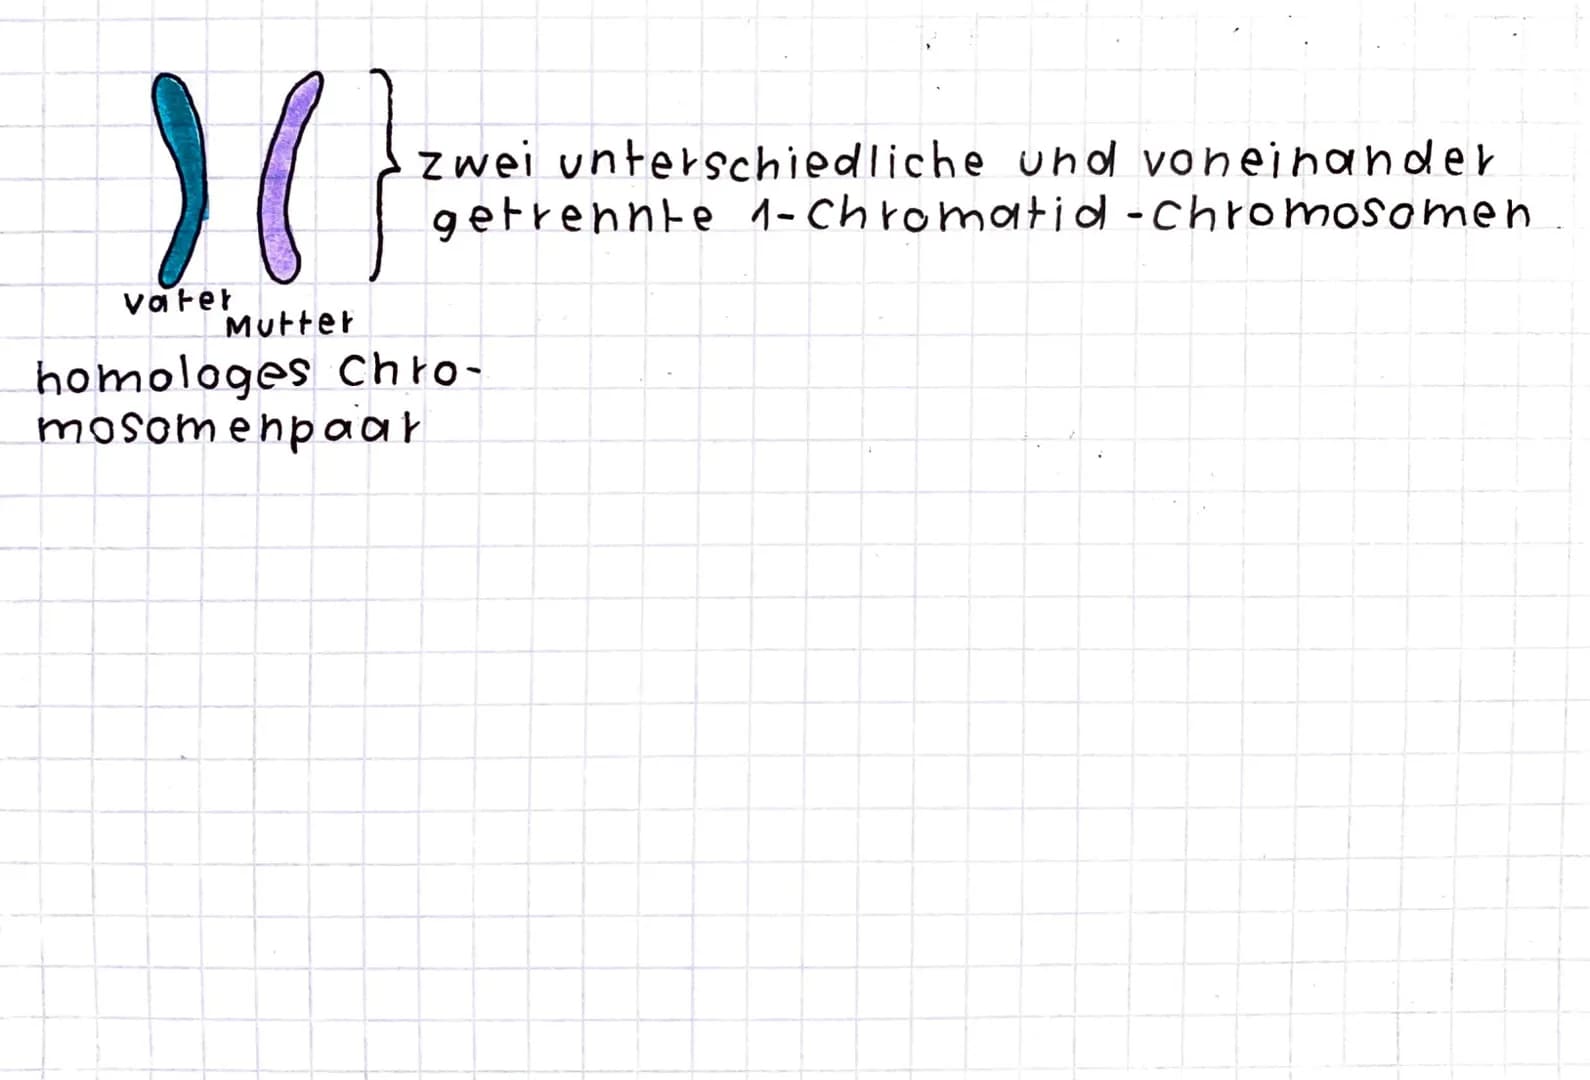 zwei unterschiedliche und voneinander
getrennte 1-Chromatid-Chromosomen.
Vater
Mutter
homologes Chro-
mosomenpaar